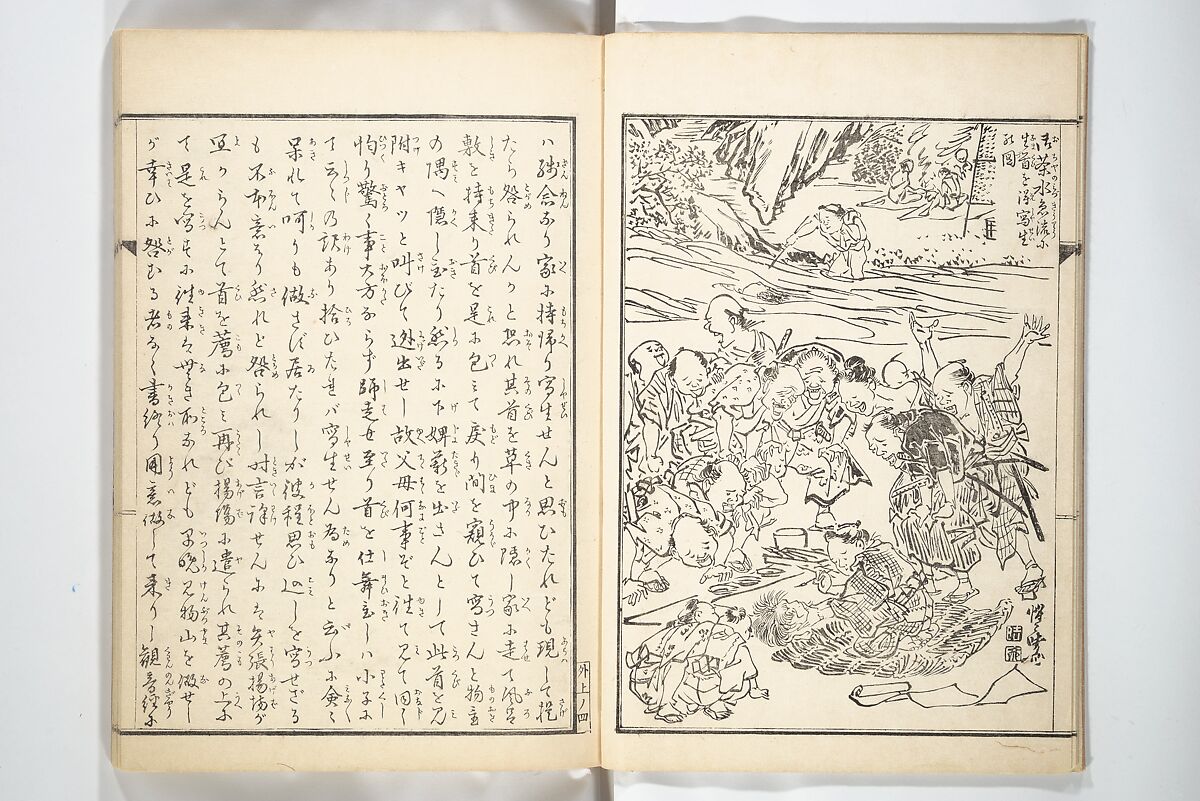 御茶水急流に
生首を得写生
の図
惺々暁斎
ハ残念なり家に持帰り写生せんと思ひたれども現して提
たら咎られんかと恐れ其首を草の中に隠し家に走て風呂
敷を持来り首を足に包みて戻り間を窺ひて写さんと物置
の隅へ隠し置たり然るに下婢薪を出さんとして此首を見
附キヤツと叫びて逃出せし故父母何事ぞと往て見て同く
恟り驚く事大方ならず師走せ至り首を仕舞置しハ小子に
て云々の訳あり拾ひたれバ写生せん為なりと云ふに僉々
呆れて呵りも做さず居たりしが彼程思ひ込しを写せざる
も不本意なり然れと咎られし時言訳せんにも矢張揚場が
宜からんとて首を薦に包み再び揚場に遣られ其薦の上に
て是を写すに往来も無き所なれども早晩見物山を做せし
が幸ひに咎むる者なく書終り用意做して来りし観音経に
外上ノ四